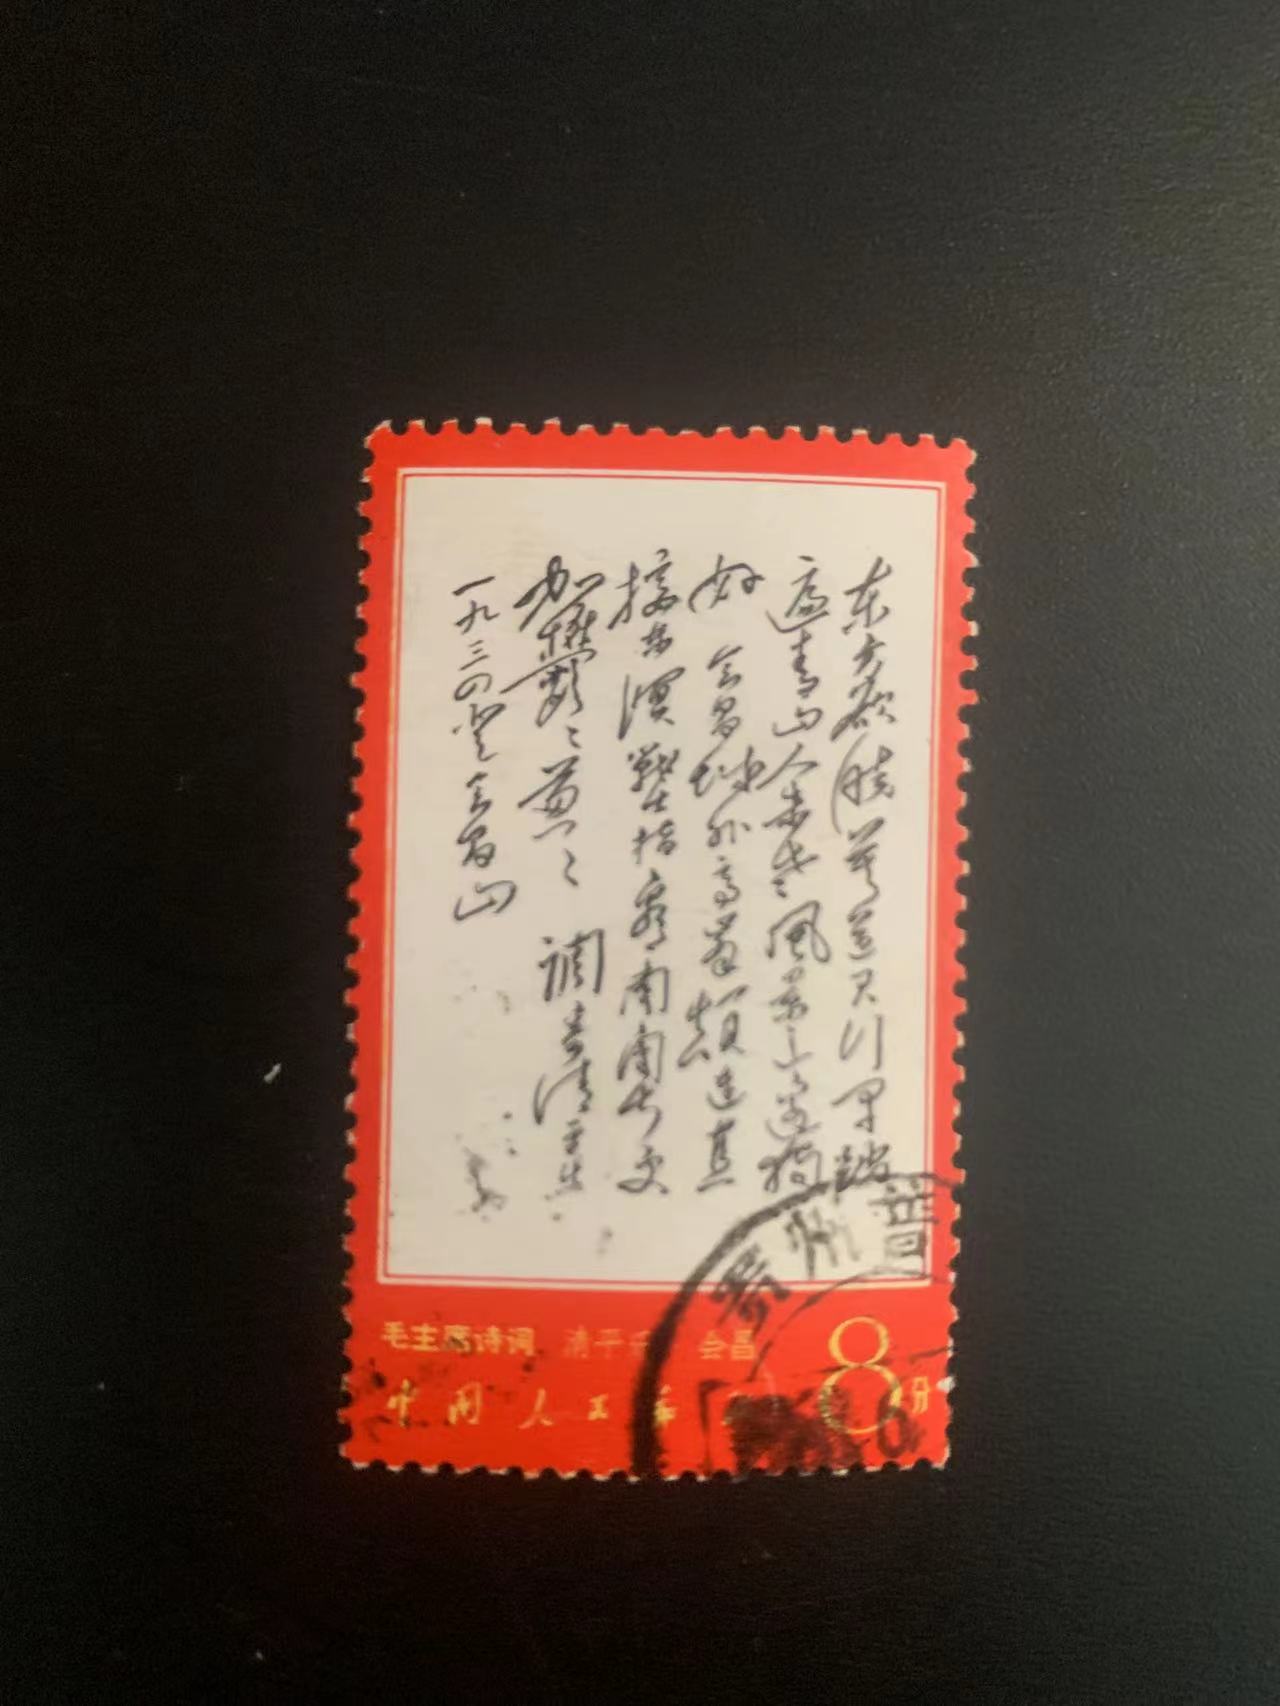 东方欲晓莫道君行早踏
遍青山人未老風景这边独
好 会昌城外高峯颠连直
接东溟戰士指看南粤更
加鬱〻葱〻 调寄清平乐
一九三四登会昌山
毛主席诗词 清平乐 会昌
中国人民邮
8分
州